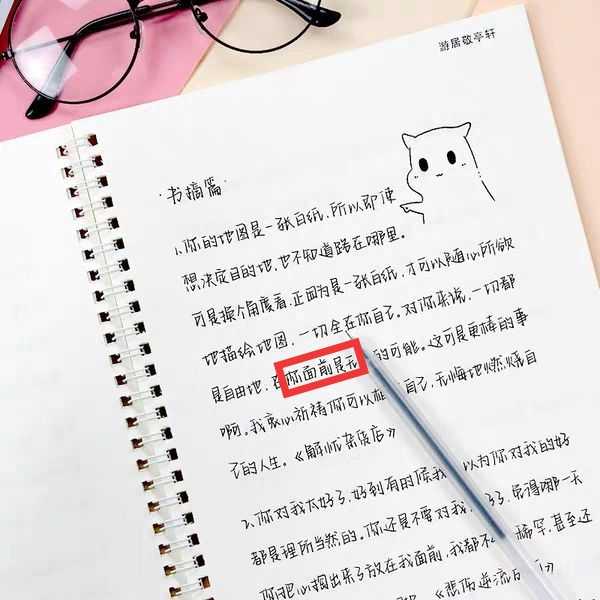 游居敬亭轩
·书摘篇·
1、你的地图是一张白纸，所以即使
想决定目的地，也不知道路在哪里。
可是换个角度看，正因为是一张白纸，才可以随心所欲
地描绘地图，一切全在你自己。对你来说，一切都
是自由地，在你面前是无 的可能。这可是更棒的事
啊。我衷心祈祷你可以相 自己，无悔地燃烧自
己的人生。《解忧杂货店》
2、你对我太好了，好到有的候我 以为你对我的好
都是理所当然的。你还是不要对我 了，免得哪一天
你把心掏出来了放在我面前，我都不 稀罕，甚至还
《悲伤逆流 》